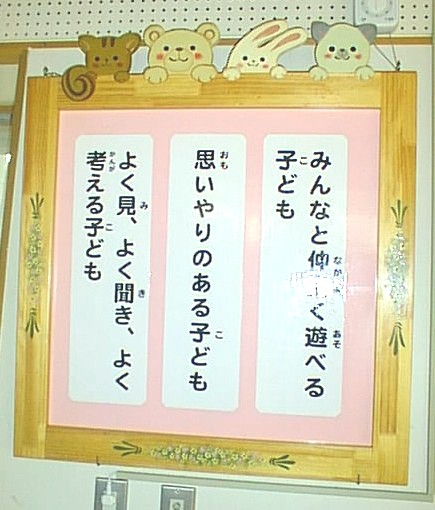 みんなと仲く遊べる
子ども
思いやりのある子ども
よく見、よく聞き、よく
考える子ども